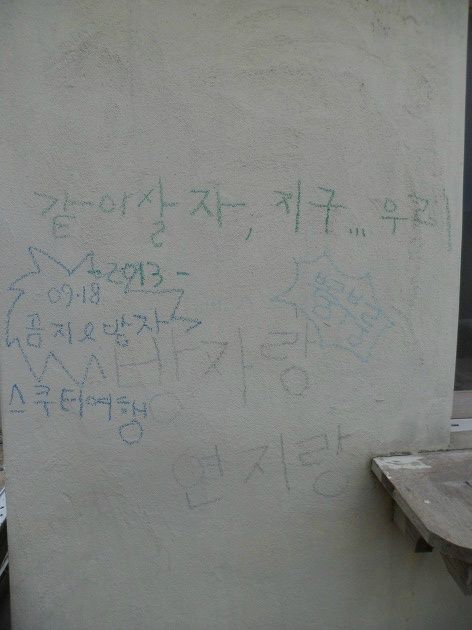 같이살자, 지구... 우리
-2013-
09.18
곰지&밤자
스쿠터여행
방자랑
연지랑